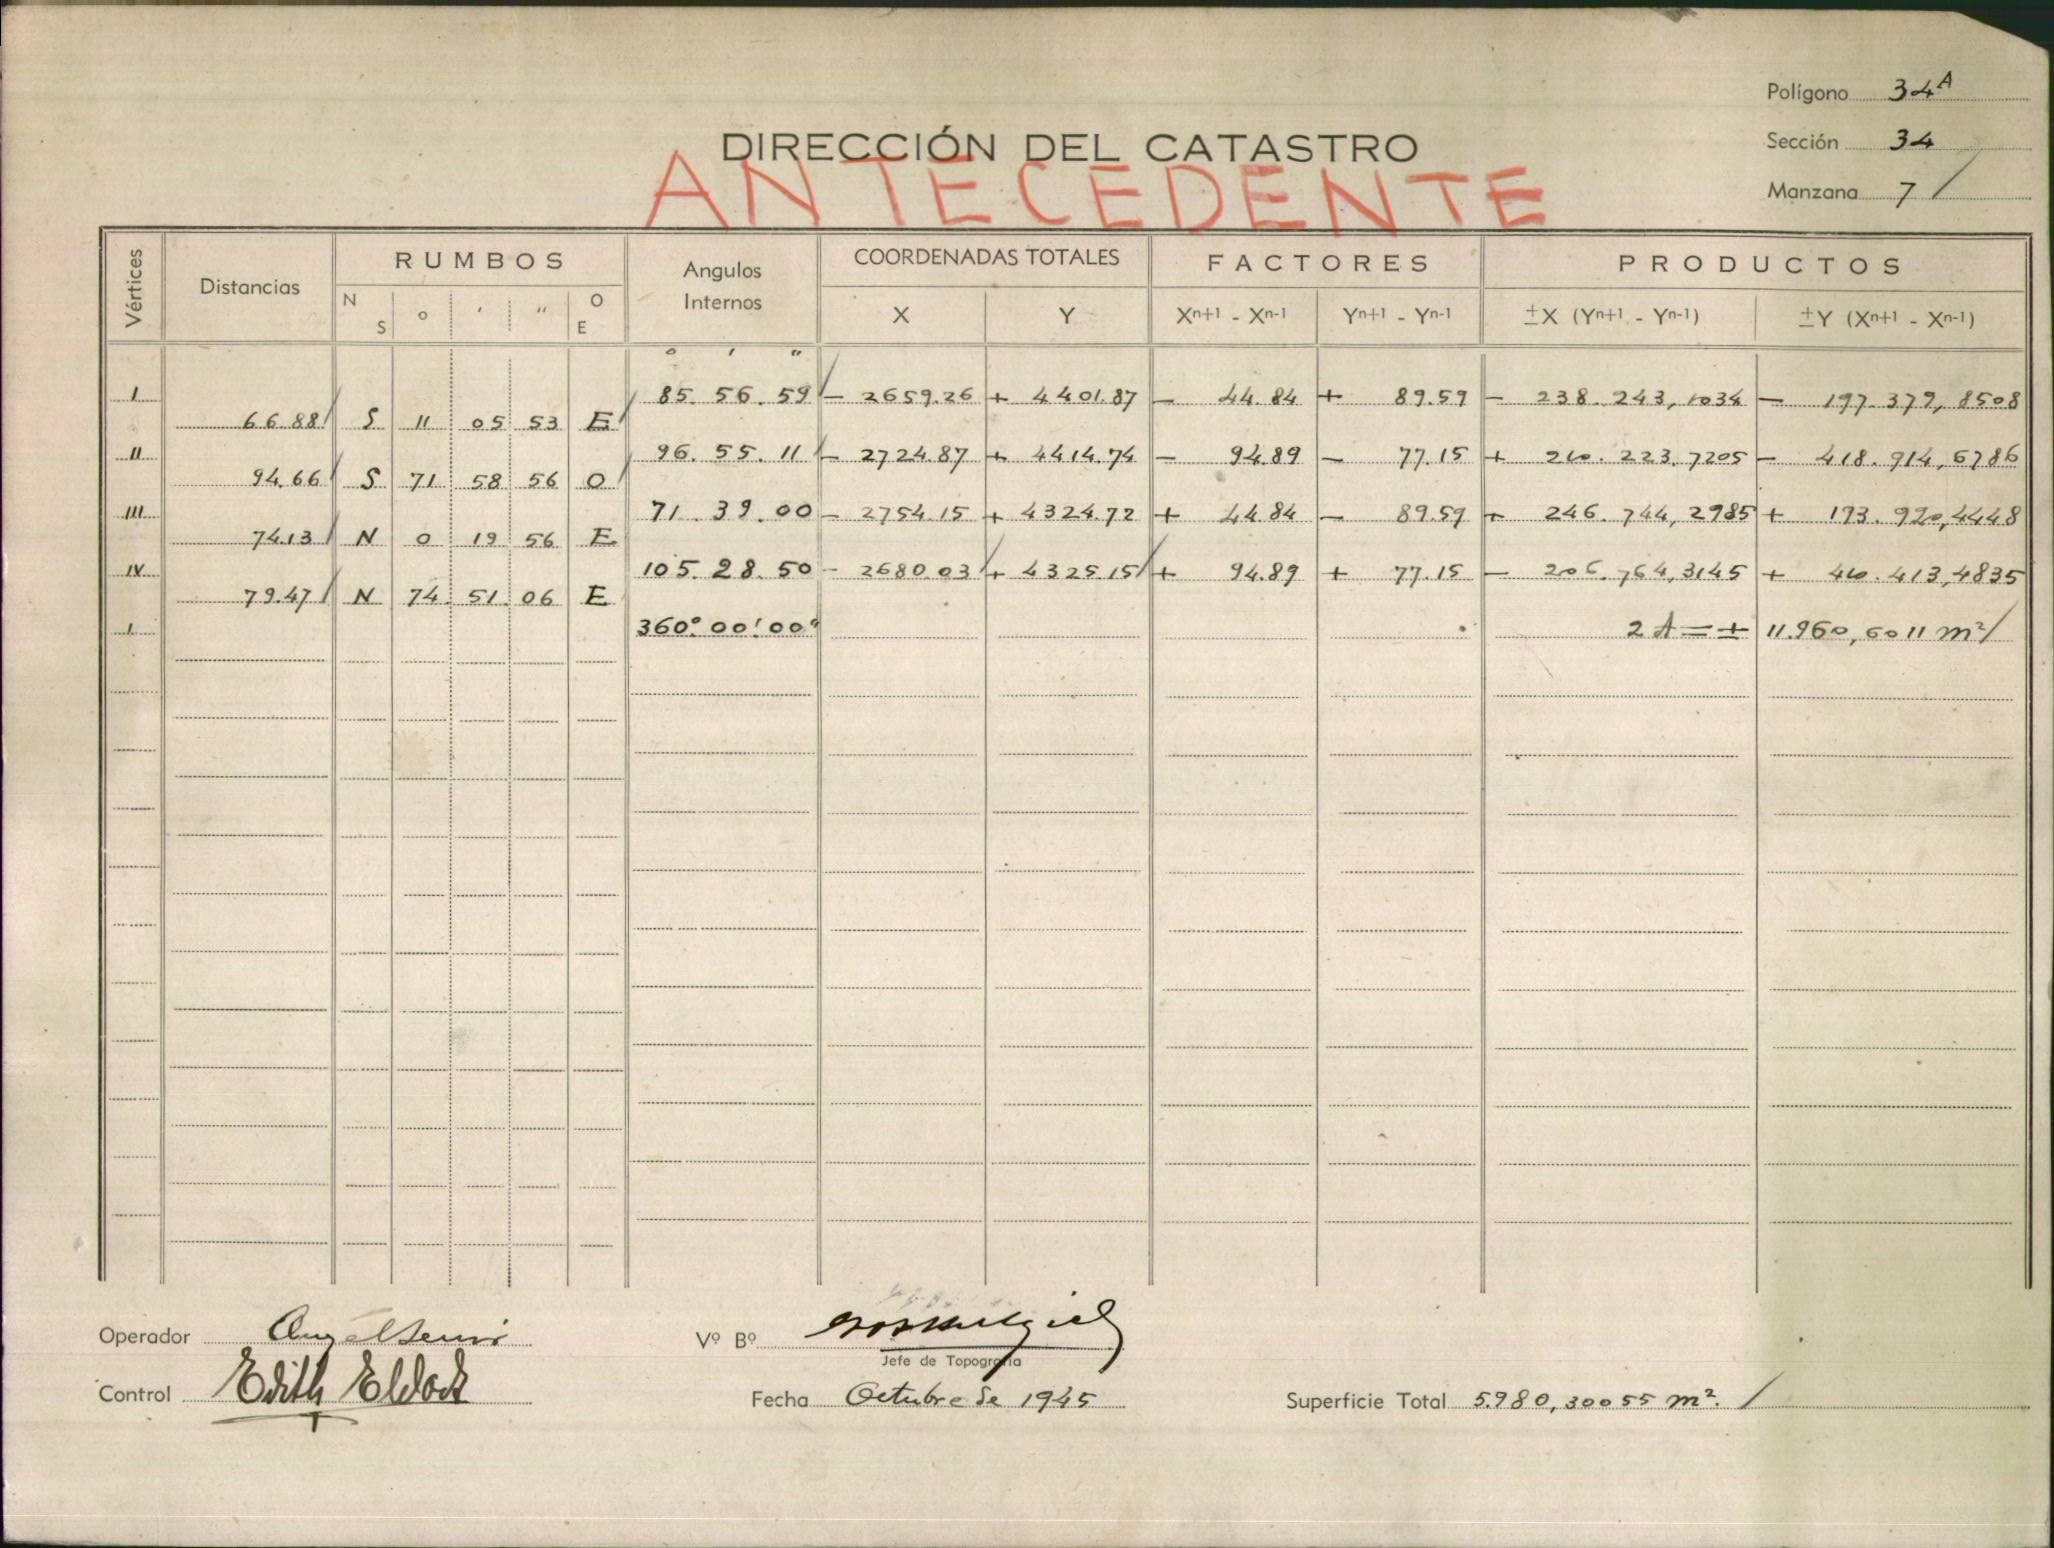 Polígono 34A
DIRECCIÓN DEL CATASTRO
Sección 34
ANTECEDENTE
Manzana 7 /
Vértices Distancias RUMBOS Angulos Internos COORDENADAS TOTALES FACTORES PRODUCTOS
N S ° ' " O E X Y Xn+1 - Xn-1 Yn+1 - Yn-1 ±X (Yn+1 - Yn-1) ±Y (Xn+1 - Xn-1)
° ' "
I 85. 56. 59 - 2659.26 + 4401.87 - 44.84 + 89.59 - 238.243,1034 - 197.379,8508
66.88 S 11 05 53 E
II 96. 55. 11 - 2724.87 + 4414.74 - 94.89 - 77.15 + 210.223,7205 - 418.914,6786
94.66 S 71 58 56 O
III 71. 39. 00 - 2754.15 + 4324.72 + 44.84 - 89.59 + 246.744,2985 + 193.920,4448
74.13 N 0 19 56 E
IV 105. 28. 50 - 2680.03 + 4325.15 + 94.89 + 77.15 - 206.764,3145 + 410.413,4835
79.47 N 74 51 06 E
I 360° 00' 00" 2 A = ± 11.960,6011 m² /
Operador Vº Bº
Jefe de Topografía
Control Edith
Fecha Octubre de 1945 Superficie Total 5.980,30055 m². /